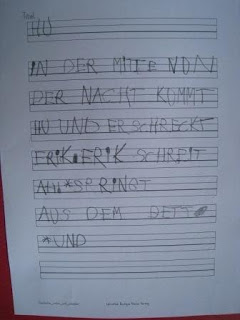 HU
IN DER MITEE VON
DER NACHT KOMMT
HU UND ERSCHRECKT
ERIK.ERIK SCHREIT
SPRINGT
AUS DEM BETT
UND